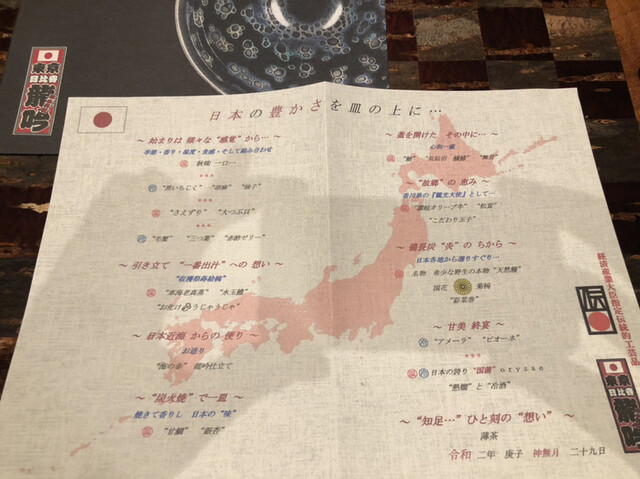 東京
日比谷
龍吟
日本の豊かさを皿の上に…
～ 始まりは 様々な “感覚” から… ～
季節・香り・温度・食感・そして組み合わせ
温 秋味 一口…
***
冷 “黒いちじく” “胡麻” “柚子”
***
温 “さえずり” “大つぶ貝”
***
冷 “毛蟹” “三つ葉” “赤酢ゼリー”
～ 引き立て “一番出汁” への 想い ～
“収穫祭蒔絵椀”
温 “赤海老真蒸” “水玉鱧”
～ 日本近海 からの 便り ～
お造り
“海の幸” 龍吟仕立て
～ “炭火焼” で一皿 ～
焼きて香りし 日本の “味”
温 “甘鯛” “銀杏”
～ 蓋を開けた その中に… ～
心和一蒸
～ “故郷” の 恵み ～
香川県の『観光大使』として…
温 “讃岐オリーブ牛” “松茸”
“こだわり玉子”
～ 備長炭 “炎” の ちから ～
日本各地から選りすぐり…
温 名物 希少な野生の本物 “天然鰻”
国花 菊椀
～ 甘美 終宴 ～
冷 “アメーラ” “ピオーネ”
***
温 冷 日本の誇り “国菌” oryzae
“熱燗” と “冷酒”
～ “知足…” ひと刻の “想い” ～
薄茶
令和 二年 庚子 神無月 二十九日
経済産業大臣指定伝統的工芸品
伝
東京
日比谷
龍吟